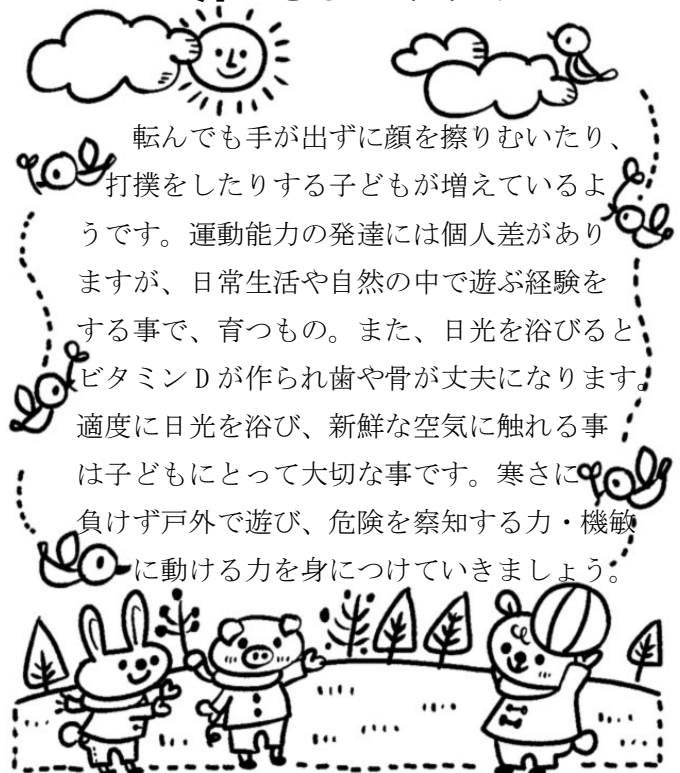 転んでも手が出ずに顔を擦りむいたり、
打撲をしたりする子どもが増えているよ
うです。運動能力の発達には個人差があり
ますが、日常生活や自然の中で遊ぶ経験を
する事で、育つもの。また、日光を浴びると
ビタミンDが作られ歯や骨が丈夫になります。
適度に日光を浴び、新鮮な空気に触れる事
は子どもにとって大切な事です。寒さに
負けず戸外で遊び、危険を察知する力・機敏
に動ける力を身につけていきましょう。